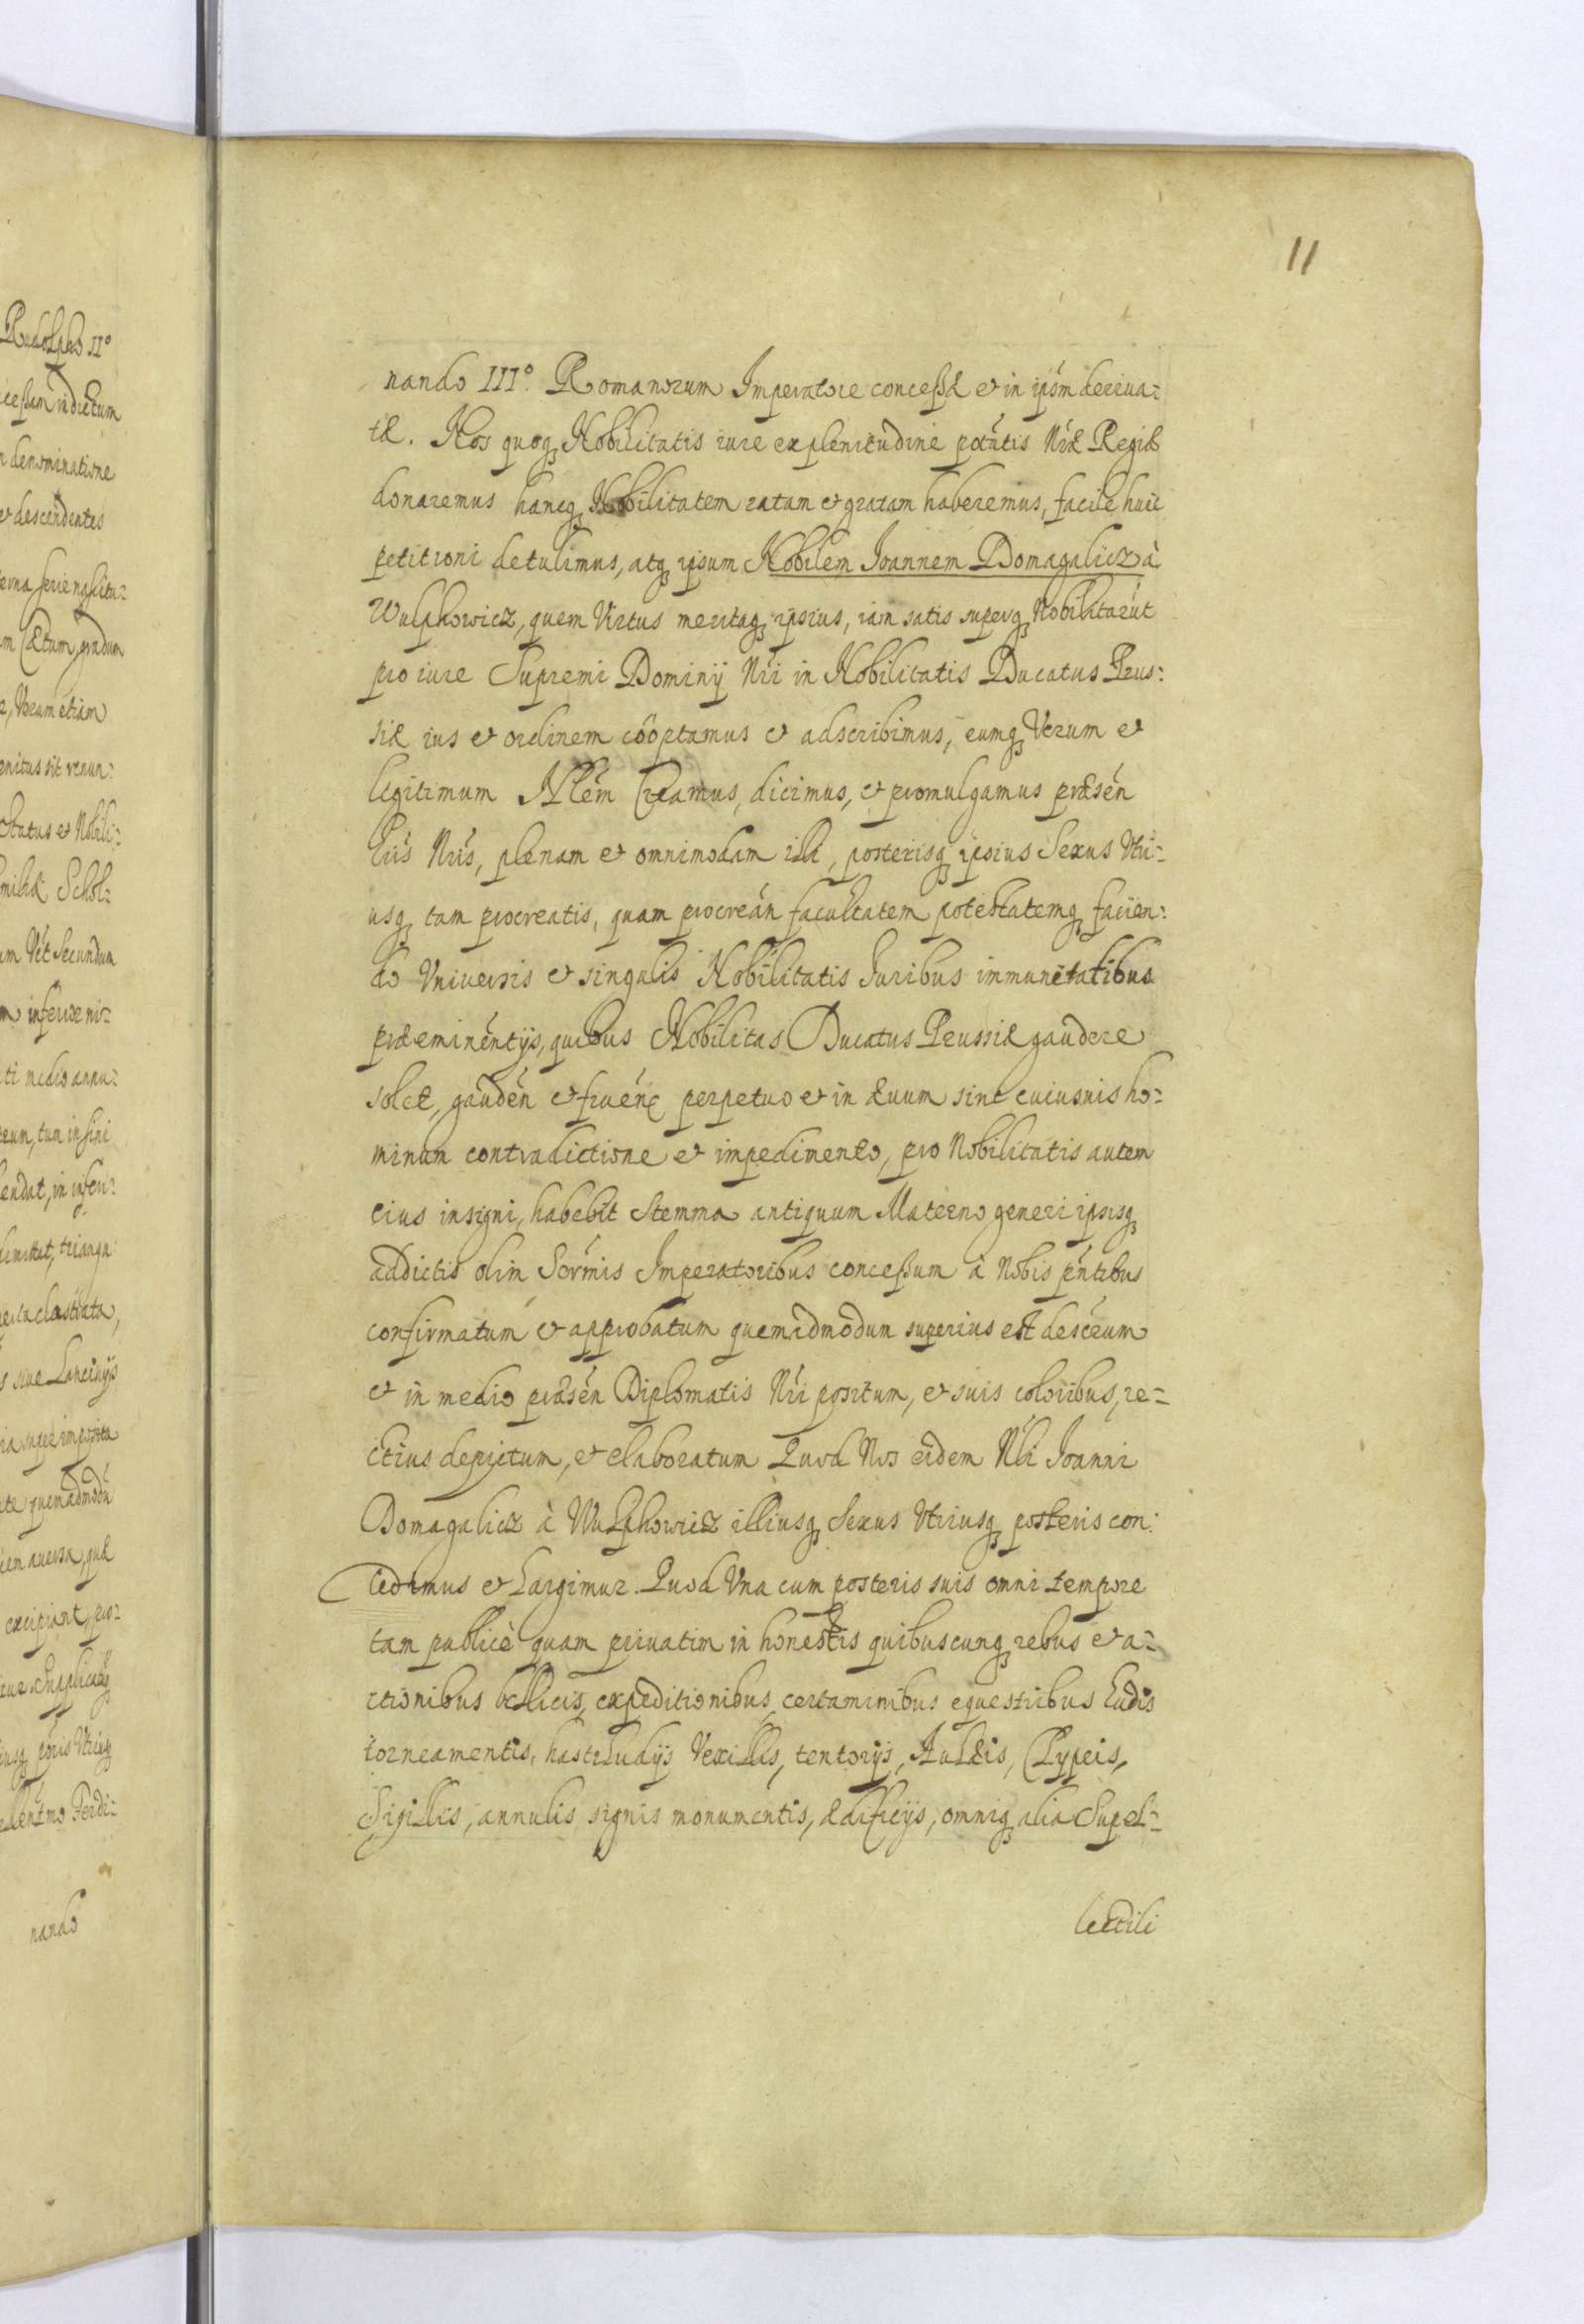 11
nando III° Romanorum Imperatore concessæ et in ipsm̃ deriua-
tæ. Nos quoq Nobilitatis iure ex plenitudine potãtis Nr̃æ Regiæ
donaremus hancq Nobilitatem ratam et gratam haberemus, facile huic
petitioni detulimus, atq ipsum Nobilem Ioannem Domagalicz à
Wulphowicz, quem Virtus meritaq ipsius, iam satis superq Nobilitarũt
pro iure Supremi Dominij Nri in Nobilitatis Ducatus Prus:
siæ ius et ordinem cooptamus et adscribimus, eumq Verum et
legitimum Nlem Creamus, dicimus, et promulgamus præsen
Lris Nris, plenam et omnimodam illi, posterisq ipsius Sexus Vtri-
usq tam procreatis, quam procrean facultatem potestatemq facien:
do Vniuersis et singulis Nobilitatis Iuribus immunitatibus
præeminentijs, quibus Nobilitas Ducatus Prussiæ gaudere
solet, gauden et fruen perpetuo et in æuum sine cuiusuis ho-
minum contradictione et impedimento, pro Nobilitatis autem
eius insigni, habebit Stemma antiquum Materno generi ipsisq
addictis olim Sermis Imperatoribus concessum à Nobis pntibus
confirmatum et approbatum quemadmodum superius est descrum
et in medio præsen Diplomatis Nri positum, et suis coloribus, re-
ctius depictum, et elaboratum Quod Nos eidem Nbli Ioanni
Domagalicz à Wulphowicz illiusq Sexus Vtriusq posteris con:
cedimus et Largimur. Quod Vna cum posteris suis omni tempore
tam publicè quam priuatim in honestis quibuscunq rebus et a-
ctionibus bellicis, expeditionibus, certaminibus equestribus Ludis
torneamentis, hastiludijs Vexillis, tentorijs, Aulæis, Clypeis,
Sigillis, annulis signis monumentis, ædificijs, omniq alia Supel-
lectili